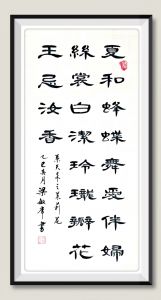 夏和蜂蝶舞伴婦
絲裳白潔玲瓏瓣花
王忌汝香
之茉莉花
乙巳月梁敏書